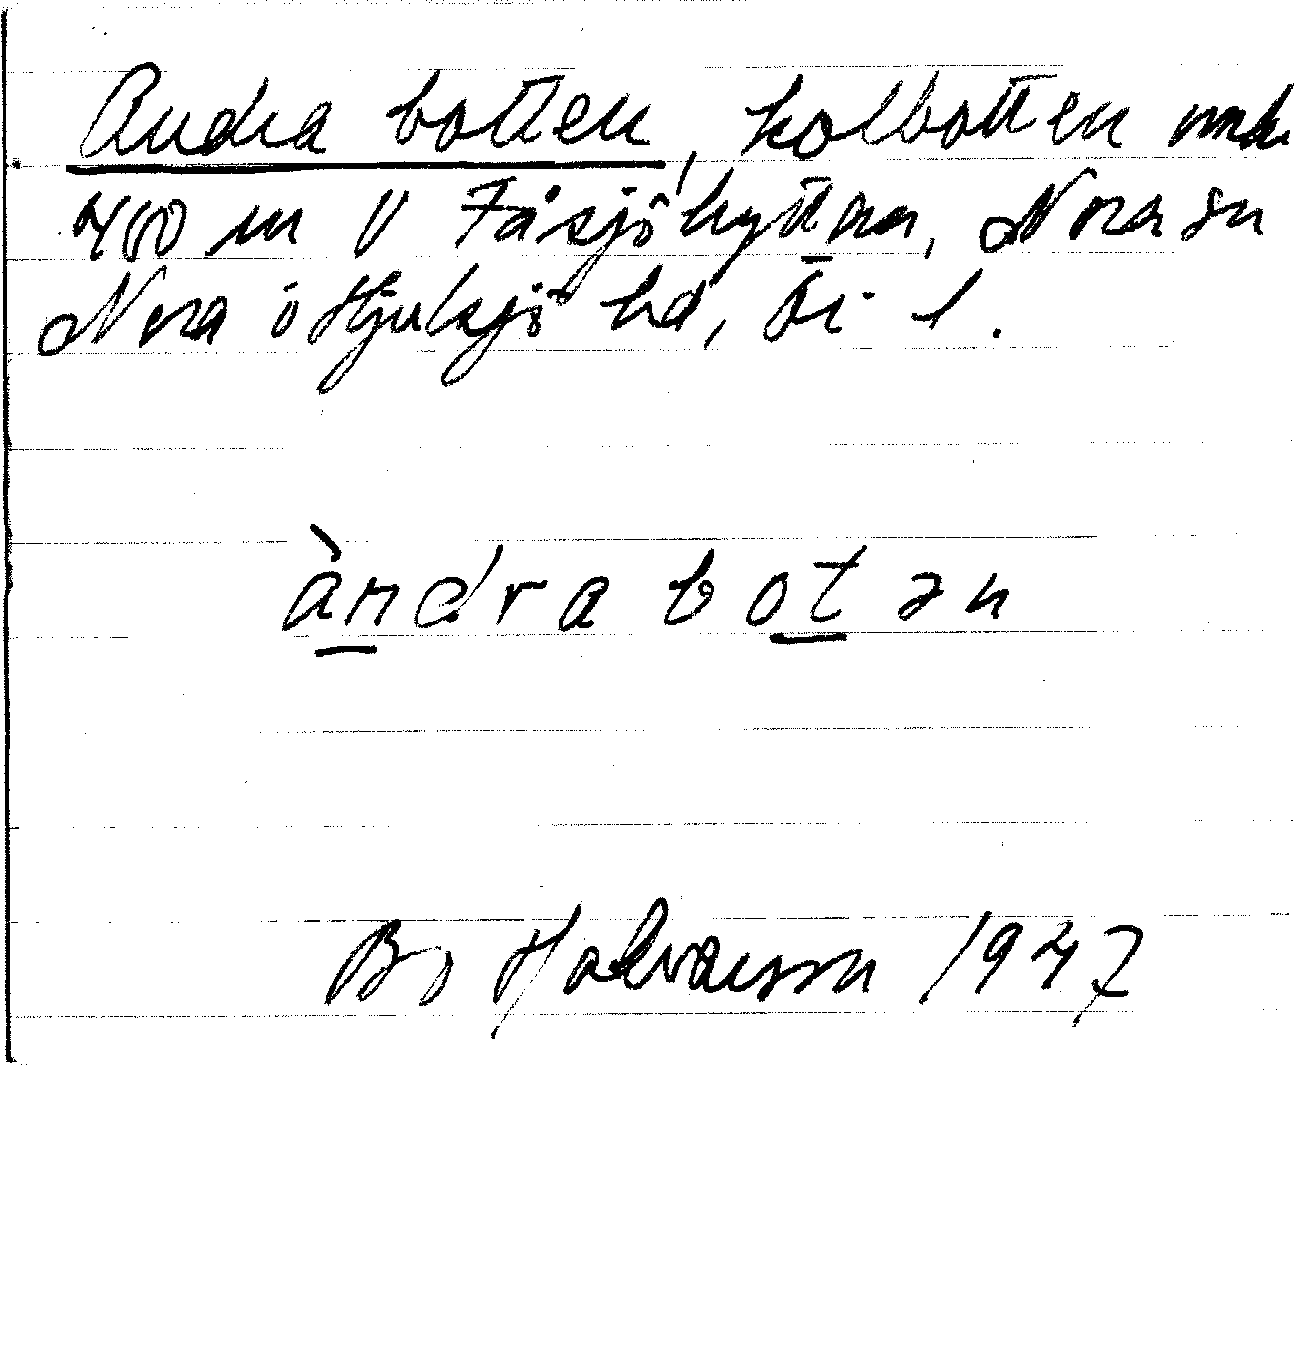 Andra botten, kolbotten omkr
400 m V Fåsjöhyttan, Nora sn
Nora o Hjulsjö hd, Ör l.
àndra botən
Bo Halvarsson 1947